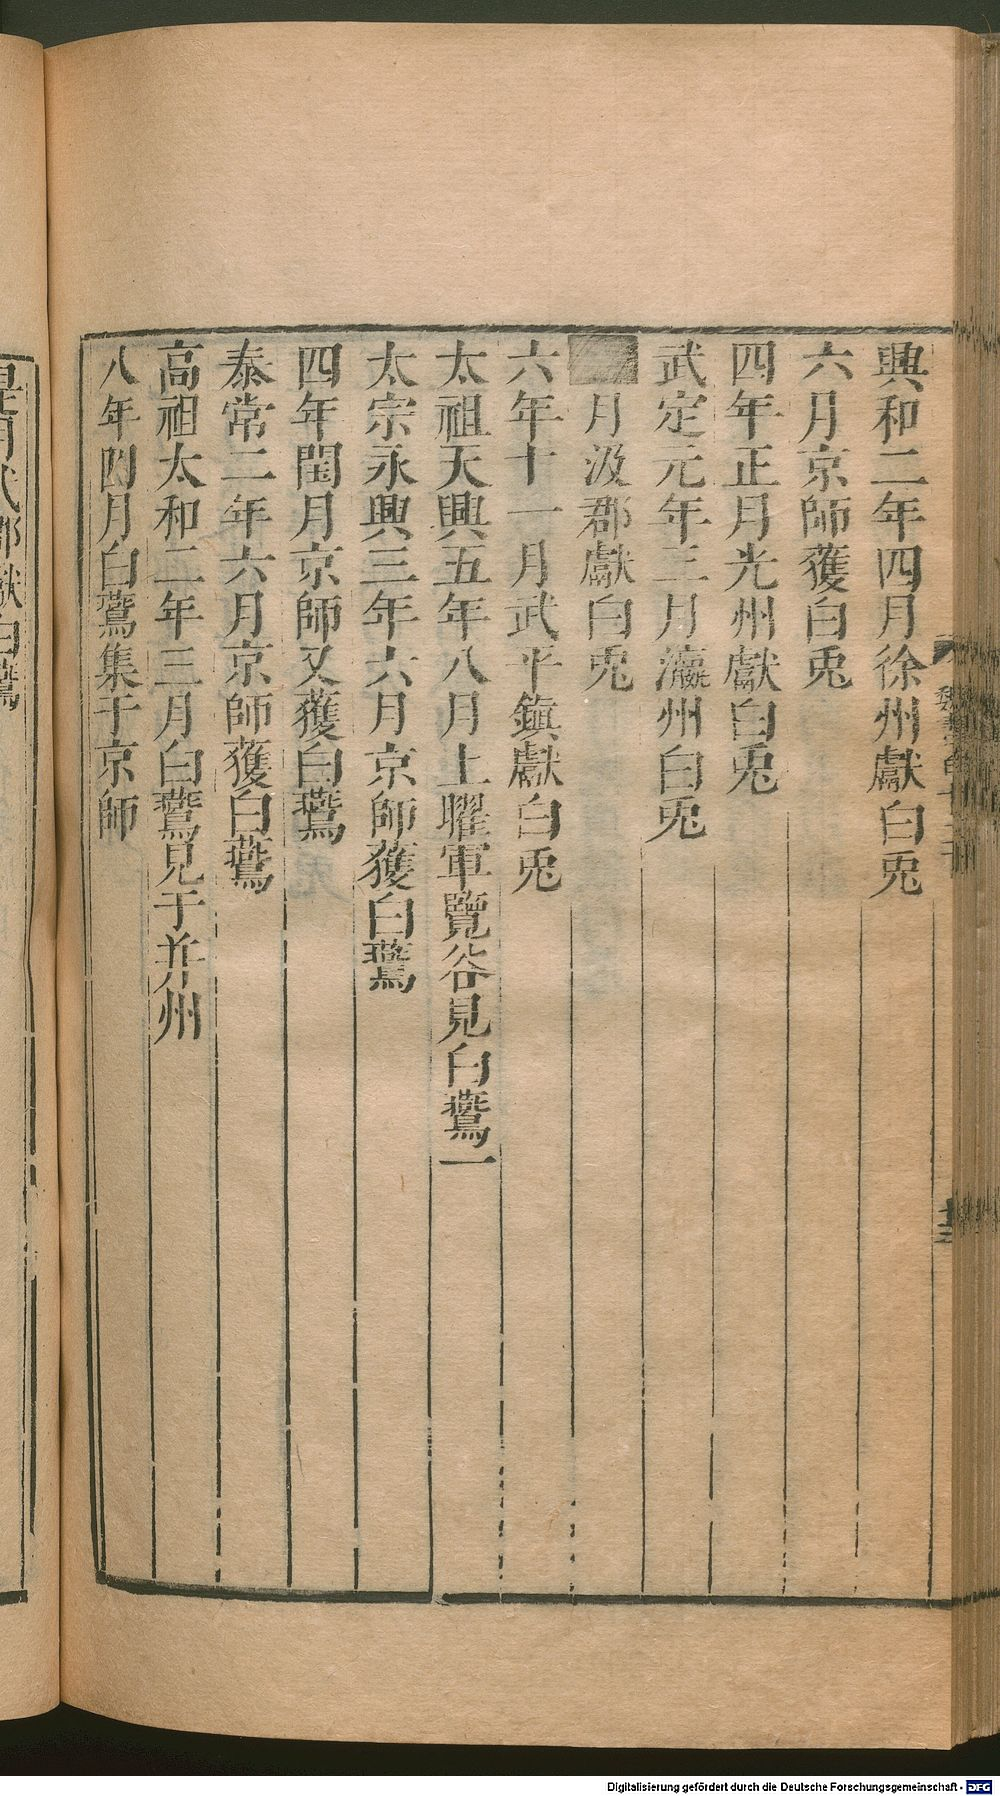 興和二年四月徐州獻白兎
六月京師獲白兎
四年正月光州獻白兎
武定元年三月瀛州白兎
月汲郡獻白兎
六年十一月武平鎮獻白兎
太祖天興五年八月上曜軍覽谷見白鷰一
太宗永興三年六月京師獲白鷰
四年閏月京師又獲白鷰
泰常二年六月京師獲白鷰
高祖太和二年三月白鷰見于并州
八年四月白鷰集于京師
是月代郡獻白鷰
Digitalisierung gefördert durch die Deutsche Forschungsgemeinschaft - DFG